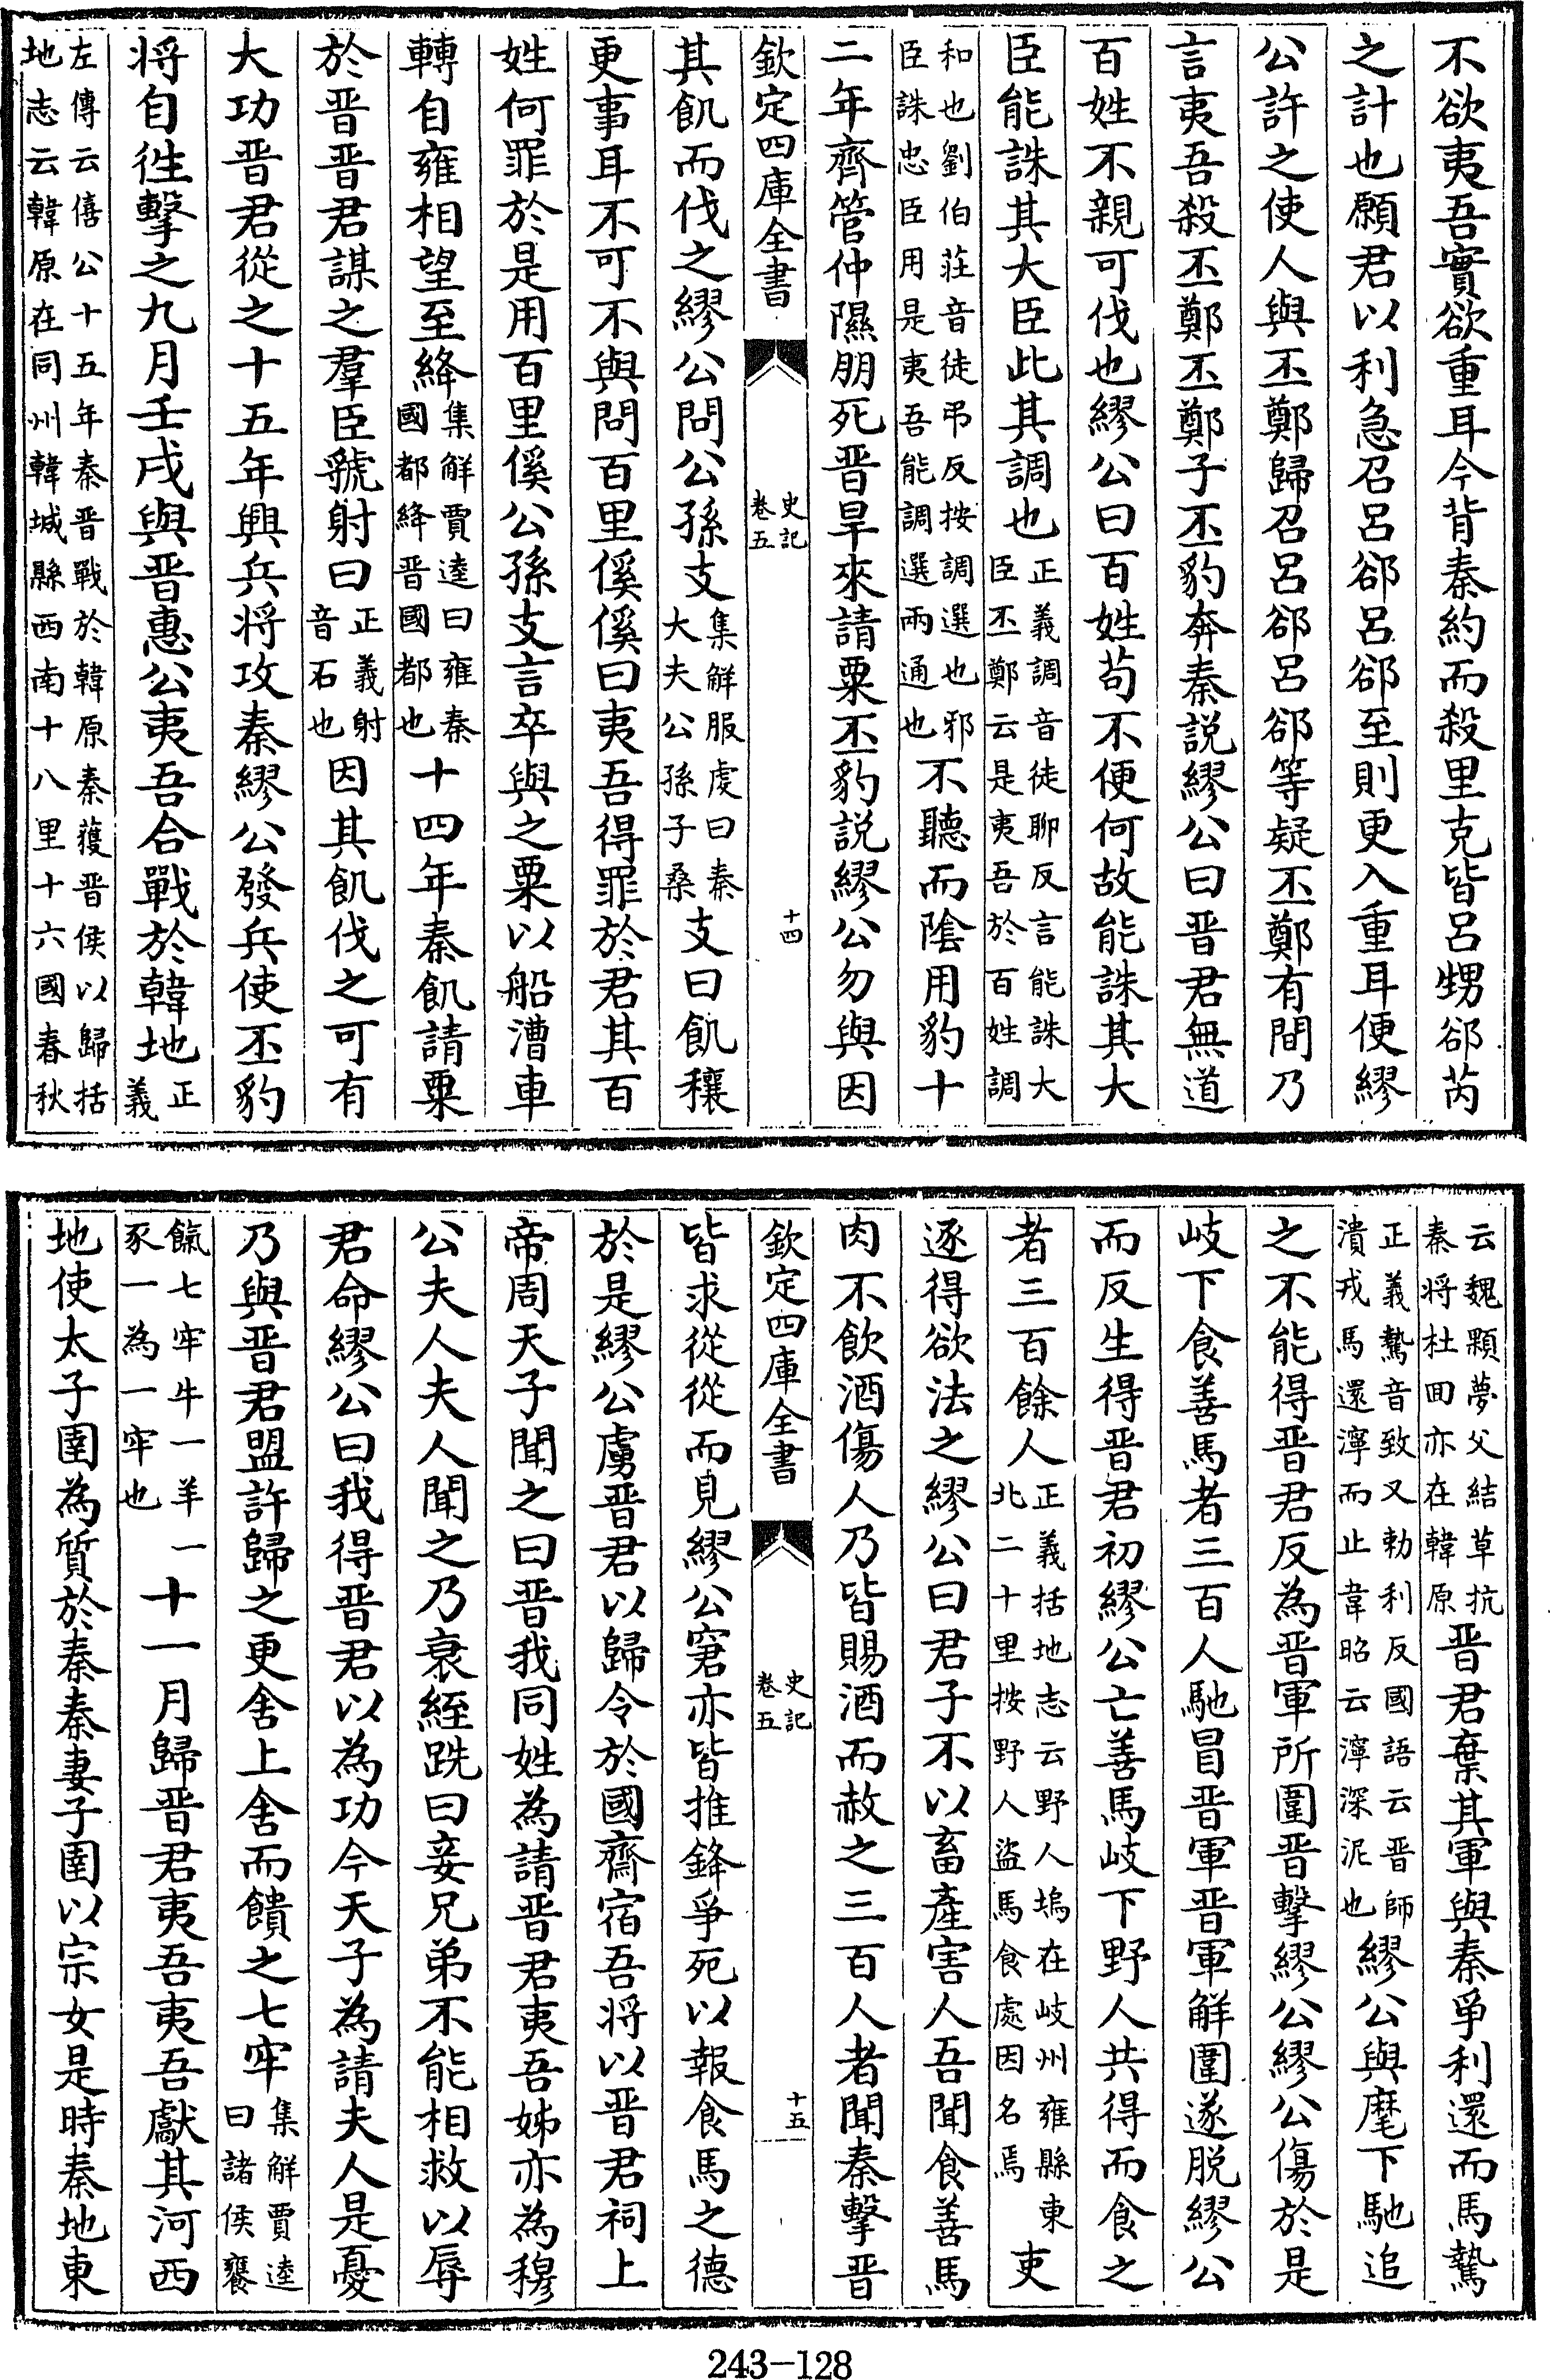 不欲夷吾實欲重耳今背秦約而殺里克皆呂甥郤芮
之計也願君以利急召呂郤呂郤至則更入重耳便繆
公許之使人與丕鄭歸召呂郤呂郤等疑丕鄭有間乃
言夷吾殺丕鄭丕鄭子丕豹奔秦說繆公曰晋君無道
百姓不親可伐也繆公曰百姓苟不便何故能誅其大
臣能誅其大臣此其調也正義調音徒聊反言能誅大臣丕鄭云是夷吾於百姓調
和也劉伯莊音徒弔反按調選也邪臣誅忠臣用是夷吾能調選兩通也不聽而陰用豹十
二年齊管仲隰朋死晋旱來請粟丕豹說繆公勿與因
欽定四庫全書 史記卷五 十四
其飢而伐之繆公問公孫支集解服虔曰秦大夫公孫子桑支曰飢穰
更事耳不可不與問百里傒傒曰夷吾得罪於君其百
姓何罪於是用百里傒公孫支言卒與之粟以船漕車
轉自雍相望至絳集解賈逵曰雍秦國都絳晋國都也十四年秦飢請粟
於晋晋君謀之羣臣虢射曰正義射音石也因其飢伐之可有
大功晋君從之十五年興兵將攻秦繆公發兵使丕豹
將自徃擊之九月壬戌與晋惠公夷吾合戰於韓地正義
左傳云僖公十五年秦晋戰於韓原秦獲晋侯以歸括地志云韓原在同州韓城縣西南十八里十六國春秋
云魏顆夢父結草抗秦將杜回亦在韓原晋君棄其軍與秦爭利還而馬驇
正義驇音致又勅利反國語云晋師潰戎馬還濘而止韋昭云濘深泥也繆公與麾下馳追
之不能得晋君反為晋軍所圍晋擊繆公繆公傷於是
岐下食善馬者三百人馳冒晋軍晋軍解圍遂脱繆公
而反生得晋君初繆公亡善馬岐下野人共得而食之
者三百餘人正義括地志云野人塢在岐州雍縣東北二十里按野人盜馬食處因名焉吏
逐得欲法之繆公曰君子不以畜產害人吾聞食善馬
肉不飲酒傷人乃皆賜酒而赦之三百人者聞秦擊晋
欽定四庫全書 史記卷五 十五
皆求從從而見繆公窘亦皆推鋒爭死以報食馬之德
於是繆公虜晋君以歸令於國齋宿吾將以晋君祠上
帝周天子聞之曰晋我同姓為請晋君夷吾姊亦為穆
公夫人夫人聞之乃衰絰跣曰妾兄弟不能相救以辱
君命繆公曰我得晋君以為功今天子為請夫人是憂
乃與晋君盟許歸之更舍上舍而饋之七牢集解賈逵曰諸侯饔
餼七牢牛一羊一豕一為一牢也十一月歸晋君夷吾夷吾獻其河西
地使太子圉為質於秦秦妻子圉以宗女是時秦地東
243-128